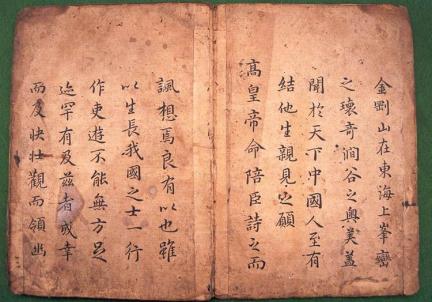 金剛山在東海上峯巒
之瓌奇澗谷之奧美盖
聞於天下中國人至有
結他生親見之願
高皇帝命陪臣詩之而
諷想焉良有以也雖
以生長我國之士一行
作吏遊不能無方足
迹罕有及玆者或幸
而及快壯觀而領幽